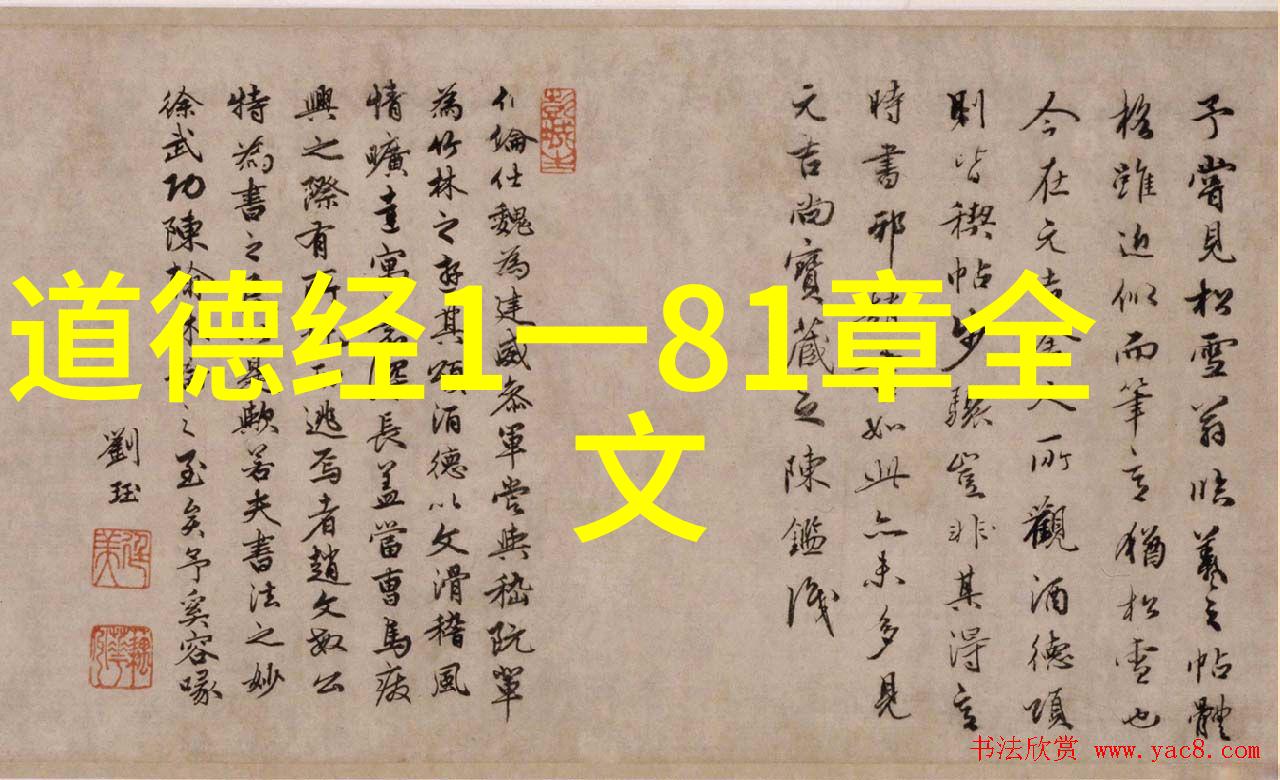 道德经1一81章全
文
予嘗見松雪翁臨羲之帖體
格雖近似而筆意猶松雪也
今在元所觀酒德頌
則皆稧帖步驟豈非其得意
時書邪如此亦未多見
元吉尚寶藏之陳鑑識
伯倫仕魏為建威參軍嘗與嵇阮輩
為竹林之遊其頌酒德以文滑稽風
情曠達寓深長蓋當曹馬疲
興之際有所逃焉者趙文敏公
特為書之是歟若夫書法之妙
徐武功陳翰林之至矣予奚容喙
劉珏
书法欣赏 www.yac8.com